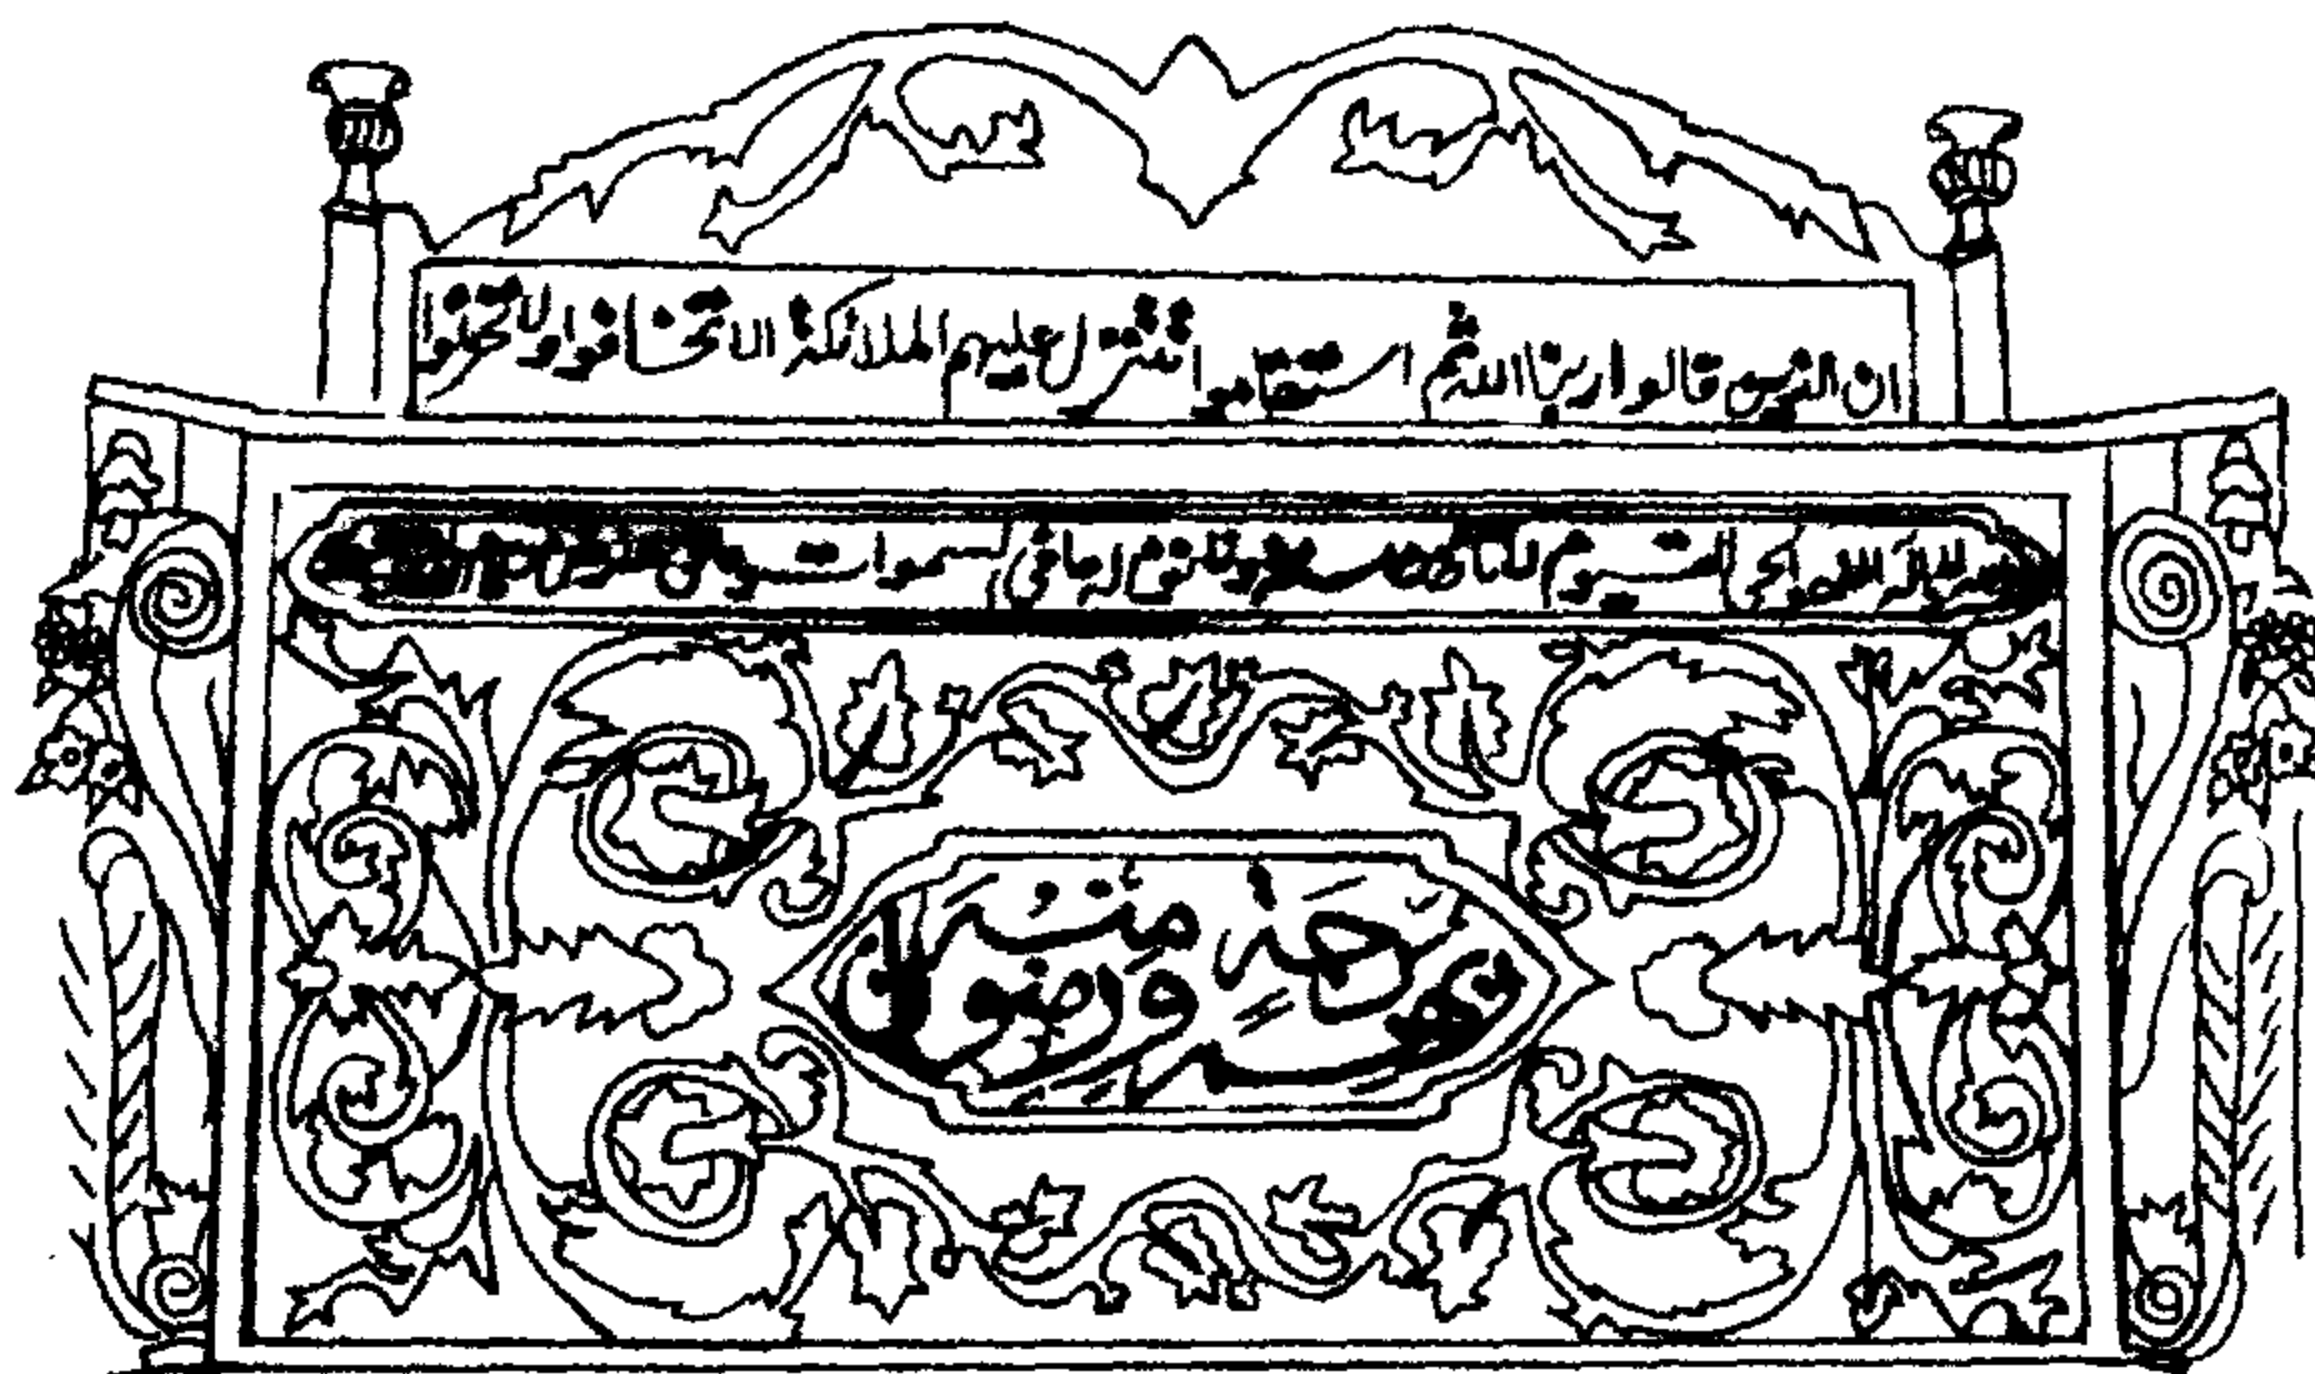 ان الذين قالوا ربنا الله ثم استقاموا تتنزل عليهم الملائكة الا تخافوا ولا تحزنوا
الله لا اله الا هو الحي القيوم لا تأخذه سنة ولا نوم له ما في السموات و
برحمة منه ورضوان